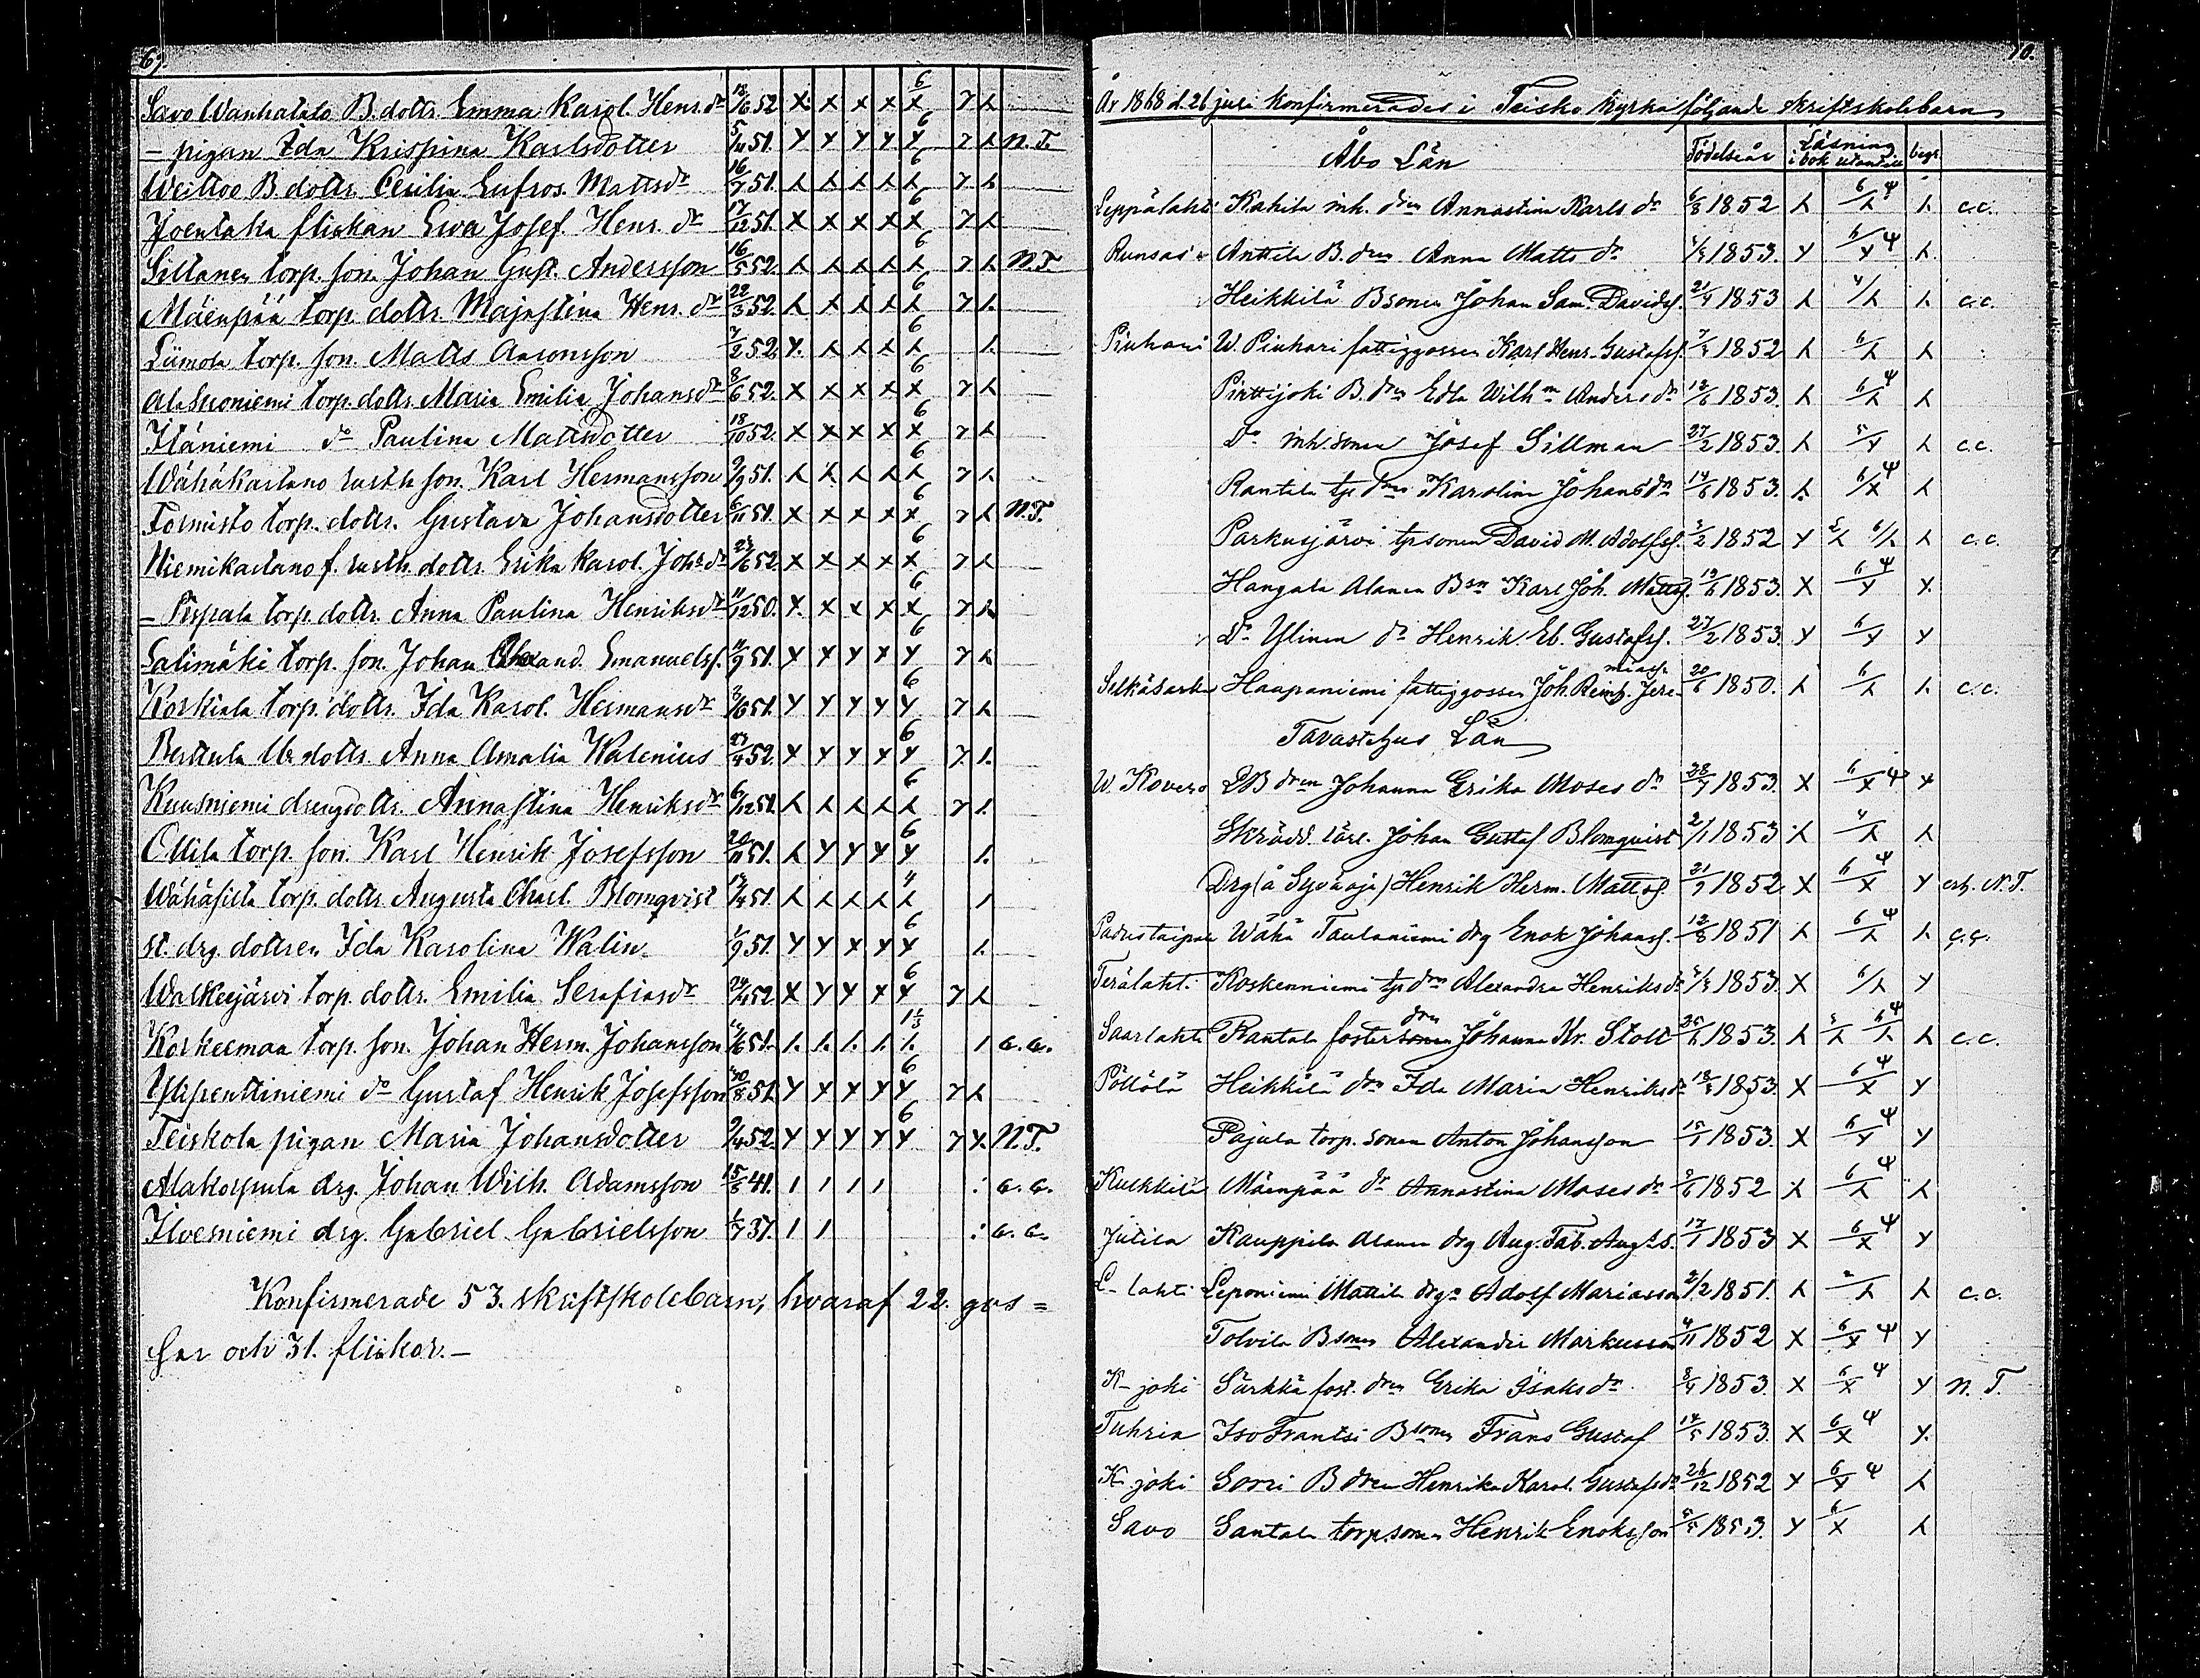 69.
Savo Wanhatalo B. dottr. Emma Karol. Henr. dr 18/6 52. X. X X X 6/X 7 λ
– pigan Ida Krispina Karlsdotter 5/11 51. Y Y Y Y 6/Y 7 λ N.T.
Weittoo B. dottr. Cecilia Eufros. Mattsdr 16/7 51. λ λ λ λ 6/λ 7 λ
Joentaka flickan Ewa Josef. Henr. dr 17/12 51. X X X X 6/X 7 λ
Siltanen torp. son. Johan Gust. Andersson 16/5 52. λ λ λ λ 6/λ 7 λ N.T.
Mäenpää torp. dottr. Majastina Henr. dr 22/3 52. λ λ λ λ 6/λ 7 λ
Liimola torp. son. Matts Aaronsson 7/2 52. Y. λ λ λ 6/λ λ
Ala Suoniemi torp. dottr. Maria Emilia Johansdr 8/6 52. X X X X 6/X 7 λ
Itäniemi do Paulina Mattsdotter 18/10 52. X X X X 6/X 7 λ
Wähäkartano rusth. son. Karl Hermansson 9/9 51. λ λ λ λ 6/λ 7 λ
Formisto torp. dottr. Gustava Johansdotter 6/11 51. X X X X 6/X 7 λ N.T.
Niemikartano f. rusth. dottr. Erika Karol. Johsdr 24/6 52. X X X X 6/X 7 λ
– Pispala torp. dottr. Anna Paulina Henriksdr 11/12 50. X. X X X 6/X 7 λ
Salimäki torp. son. Johan Alexand. Emanuelss. 11/9 51. Y Y Y Y 6/Y 7 λ
Korkiala torp. dottr. Ida Karol. Hermansdr 3/6 51. Y Y Y Y 6/Y 7 λ
Berttula Ur dottr. Anna Amalia Walenius 23/4 52. Y Y Y Y 6/Y 7 λ
Kuusniemi drengdottr. Annastina Henriksdr 6/12 51. λ λ λ λ 6/λ 7 λ
Ollila torp. son. Karl Henrik Josefsson 20/11 51. λ Y Y Y 6/Y λ
Wähäsilta torp. dottr. Augusta Charl. Blomqvist 13/4 51. λ λ λ λ 4/λ 1
st. drg. dottren Ida Karolina Walin. 1/9 51. Y Y X Y 6/Y λ
Walkeejärvi torp. dottr. Emilia Serafiasdr 24/4 52. X Y Y Y 6/Y 7 λ
Korkeemaa torp. son. Johan Herm. Johansson 10/6 51. 1. 1. 1. 1. 1 1/3 1. 1 c.c.
Ylipenttiniemi do Gustaf Henrik Josefsson 30/8 51. Y Y Y Y 6/Y 7 λ
Teiskola pigan Maria Johansdotter 9/4 52. Y Y Y Y 6/Y 7 Y. N.T.
Alakorpula drg. Johan Wilh. Adamsson 15/8 41. 1 1 1 1 c.c.
Ilvesniemi drg. Gabriel Gabrielsson 1/7 37. 1 1 c.c.
Konfirmerade 53. skriftskolebarn, hvaraf 22. gos=
sar och 31. flickor. –
70.
År 1868 d. 26 juni konfirmerades i Teisko kyrka följande skriftskolebarn
Åbo Län Födelseår Läsning i bok utantill begr.
Leppälaht. Kakila inh. dren Annastina Karls dr 6/8 1852 λ 6/λ Ψ λ c.c.
Anttila B. dren Anna Matts dr 1853. Y 6/Y Ψ λ
Heikkilä Bsonen Johan Sam. Davidss. 21/4 1853 λ 4/λ λ c.c.
Piuhari W. Piuhari fattiggossen Karl Henr. Gustafss. 1852 λ 6/λ λ
Pirttijoki B. dren Edla Wilhna Anders dr 12/6 1853. λ 6/λ Ψ λ
Do inh. sonen Josef Sillman 27/2 1853. λ 5/Y λ c.c.
Rantala tp dren Karolina Johans dr 14/6 1853. λ 6/X Ψ λ
Parkusjärvi tpsonen David M. Adolfss. 1852 Y 5/λ 6/λ λ c.c.
Hangala Alanen Bsn Karl Joh. Mattss. 19/6 1853. X 6/Y Ψ Y.
Do Ylinen do Henrik Eb. Gustafss. 27/2 1853. Y 6/Y Y
Haapaniemi fattiggossen Joh. Reinh. Jere-
miass. 20/6 1850. λ 6/λ λ c.c.
Tavastehus Län
W. Kovero LB dren Johanna Erika Moses dr 28/7 1853. X 6/X Ψ Y
Skrädd. lärl. Johan Gustaf Blomqvist 2/1 1853. λ 4/λ λ
Drg (å Syväoja) Henrik Herm. Mattss. 21/7 1852 X 6/X Ψ Y N.T.
Padustaipale Wähä Taulaniemi drg Enok Johanss. 12/8 1851 λ 6/λ Ψ λ c.c.
Terälaht. Koskenniemi tp dren Alexandra Henriks dr 1853. X 6/λ Y
Saarlahti Rantala fostersonen dren Johanna Kr. Stolt 25/6 1853. λ 5/λ 6/λ Ψ λ c.c.
Pöllölä Heikkilä drn Ida Maria Henriks dr 1853. X 6/X Ψ Y
Pajula torp. sonen Anton Johansson 15/1 1853. X 6/Y Ψ Y
Kulkkila Mäenpää dr Annastina Moses dr 1852 λ 6/λ Ψ λ
Jutila Kauppila Alanen drg Aug. Fab. Aug. s. 17/1 1853 X 6/X Ψ Y
L- lahti Leponiemi Mattila drg Adolf Mariasson 2/2 1851. λ 2/λ λ c.c.
Tolvila Bsonen Alexander Markusson 4/11 1852 X 6/X Ψ Y
K- joki Särkkä fost. dren Erika Isaks dr 3/4 1853. X 6/X Ψ Y N.T.
Tuhria Iso Frantsi Bsonen Frans Gustaf 14/5 1853. X 6/X Ψ Y.
K- joki Sorri B dren Henrika Karol. Gustafsdr 26/12 1852 Y 6/Y Ψ λ
Savo Santala torp. sonen Henrik Enoksson 1853. Y 6/X λ